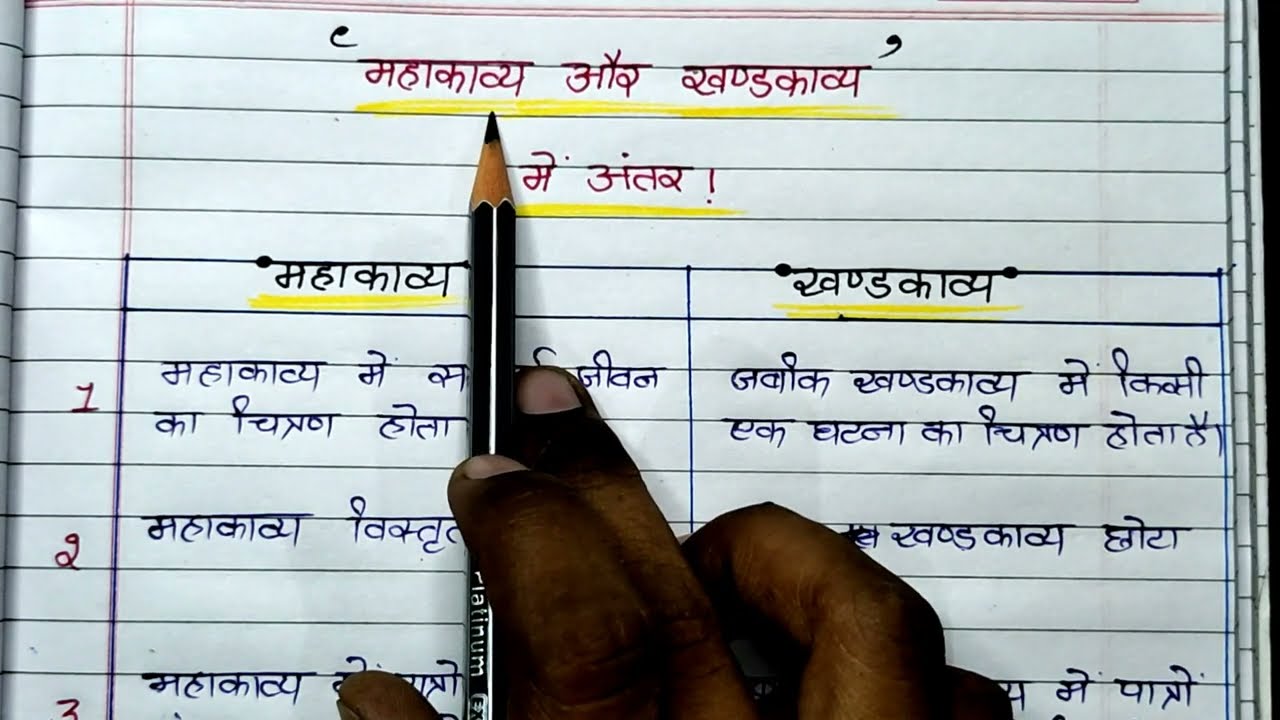 ‘महाकाव्य और खण्डकाव्य’
में अंतर!
महाकाव्य
खण्डकाव्य
1
महाकाव्य में जीवन
का चित्रण होता
जबकि खण्डकाव्य में किसी
एक घटना का चित्रण होता है।
२
महाकाव्य
खण्डकाव्य छोटा
3
महाकाव्य
में पात्रों
Platinum